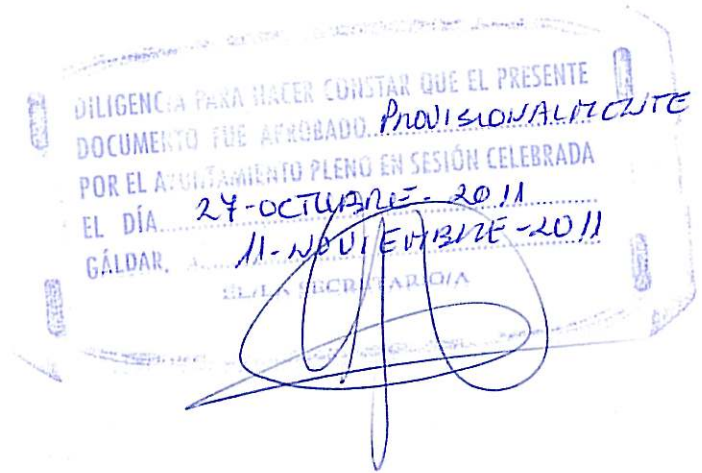 DILIGENCIA PARA HACER CONSTAR QUE EL PRESENTE
DOCUMENTO FUE APROBADO PROVISIONALMENTE
POR EL AYUNTAMIENTO PLENO EN SESIÓN CELEBRADA
EL DÍA 27-OCTUBRE-2011
GÁLDAR, A 11-NOVIEMBRE-2011
EL/LA SECRETARIO/A